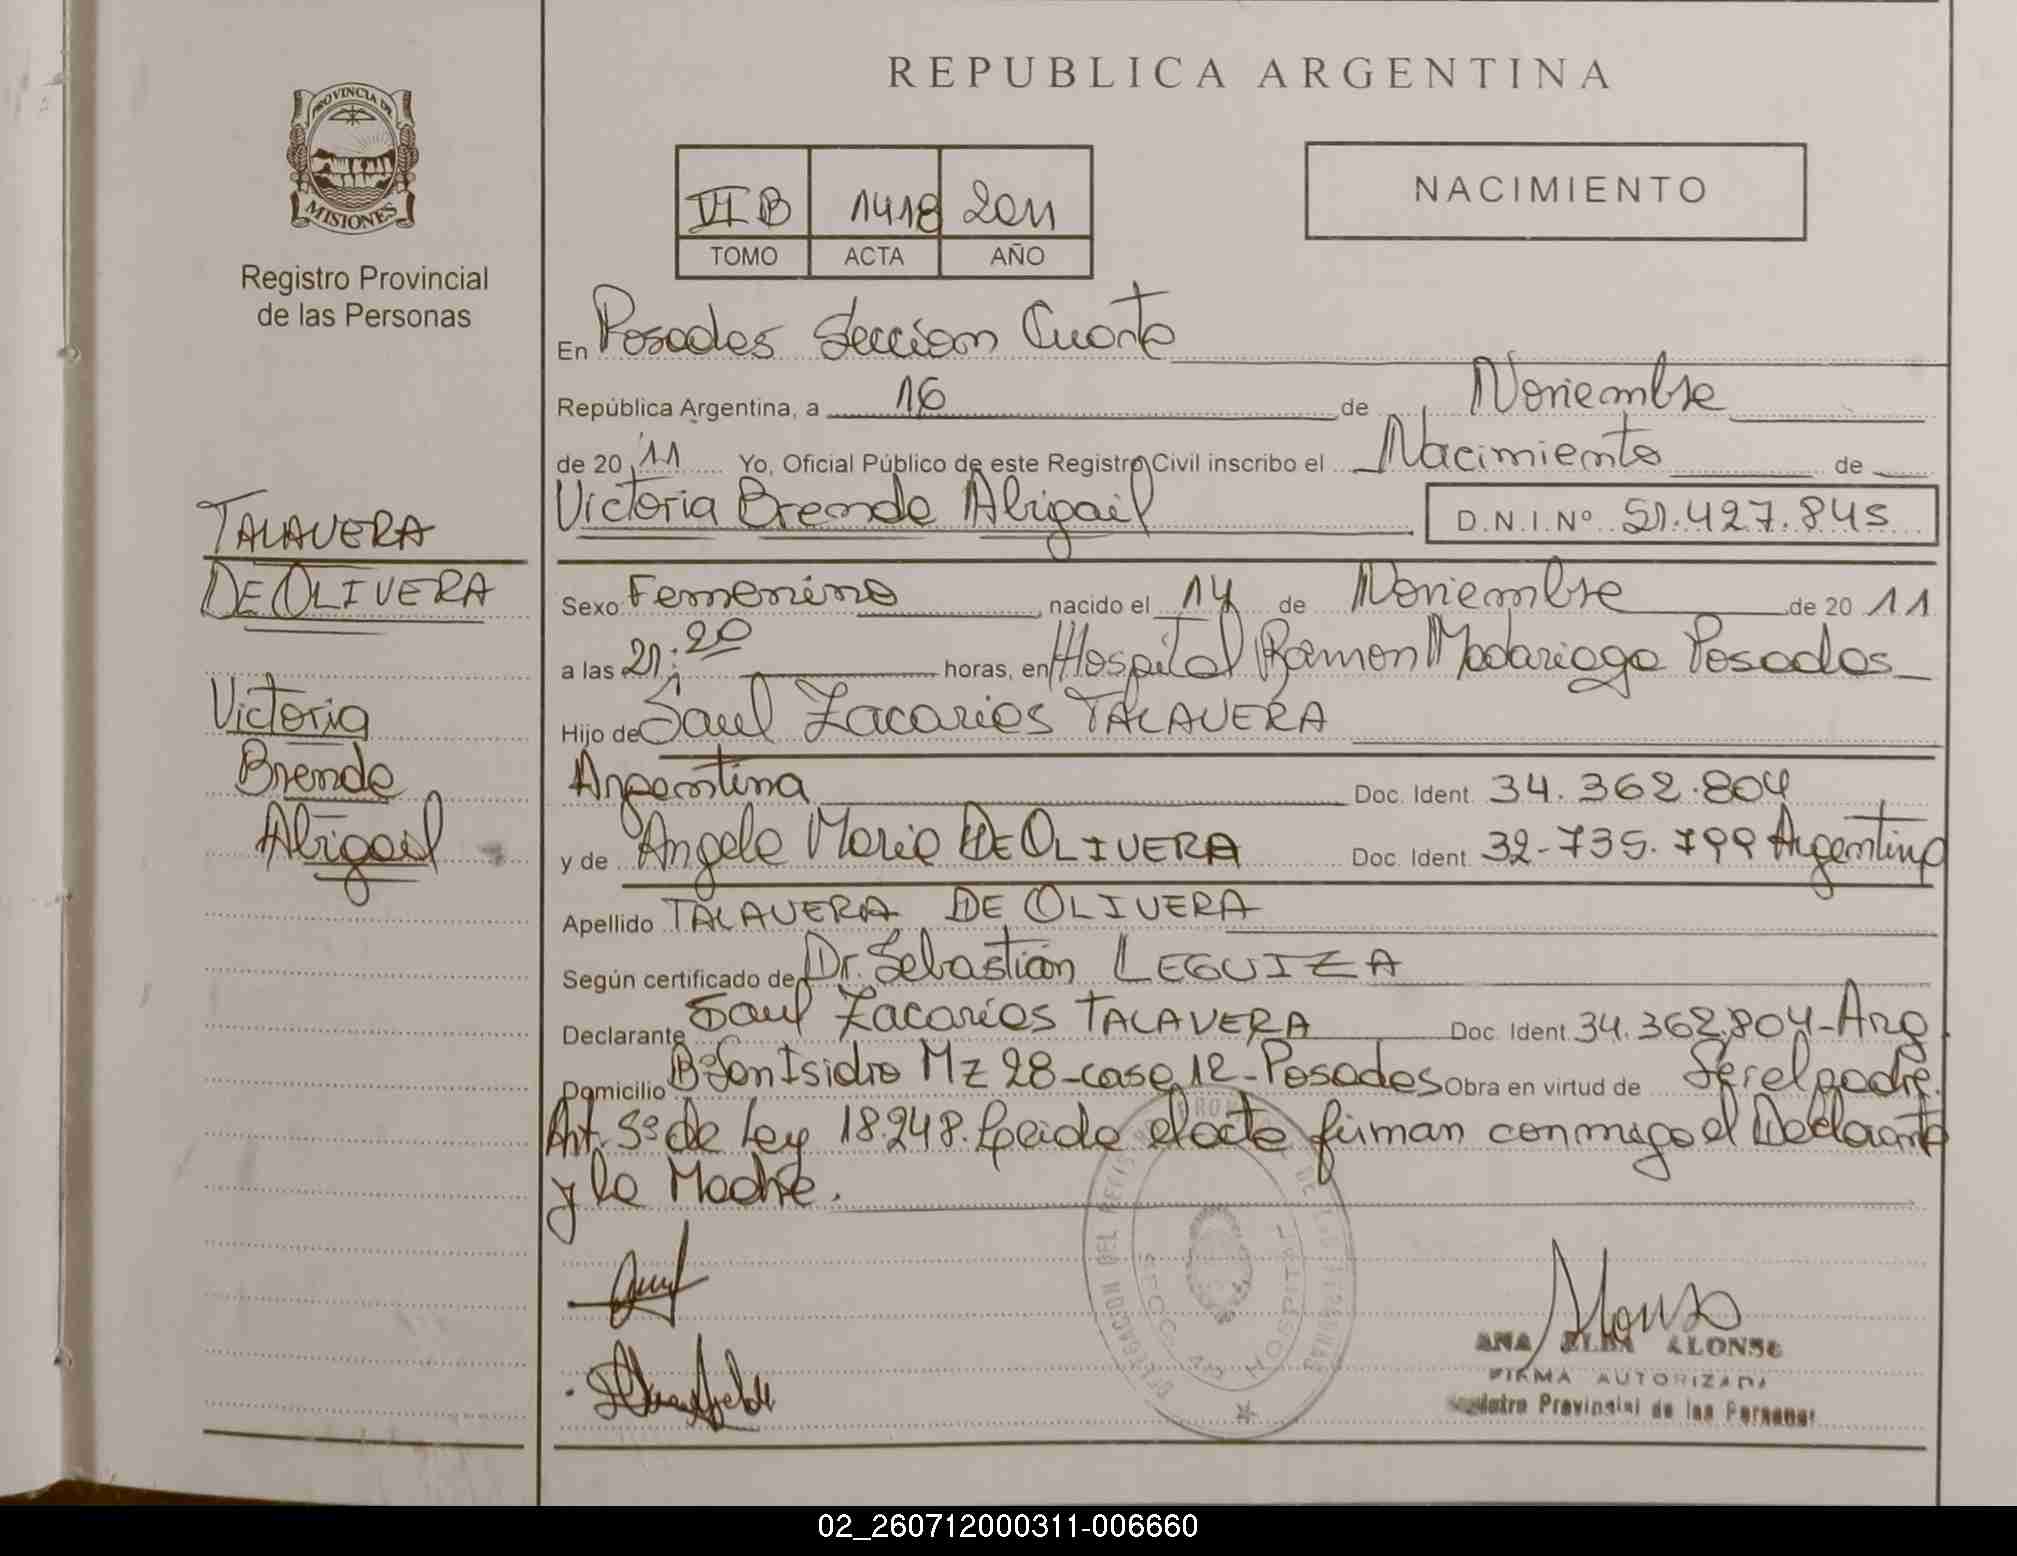 PROVINCIA DE
MISIONES
Registro Provincial
de las Personas
TALAVERA
DE OLIVERA
Victoria
Brenda
Abigail
REPUBLICA ARGENTINA
VI B 1418 2011
TOMO ACTA AÑO
NACIMIENTO
En Posadas Seccion Cuarta
República Argentina, a 16 de Noviembre
de 20 11 Yo, Oficial Público de este Registro Civil inscribo el Nacimiento de
Victoria Brenda Abigail D.N.I.Nº 51.427.845
Sexo Femenino nacido el 14 de Noviembre de 20 11
a las 21:20 horas, en Hospital Ramon Madariaga Posadas
Hijo de Saul Zacarias TALAVERA
Argentina Doc. Ident. 34.362.804
y de Angela Maria DE OLIVERA Doc. Ident. 32-735.799 Argentina
Apellido TALAVERA DE OLIVERA
Según certificado de Dr. Sebastian LEGUIZA
Declarante Saul Zacarias TALAVERA Doc. Ident. 34.362.804-Arg
Domicilio Bº San Isidro Mz 28-casa 12-Posadas Obra en virtud de Ser el padre.
Art. 5º de Ley 18.248. Leida el acta firman conmigo el Declarante
y la Madre.
Alonso
ANA ELBA ALONSO
FIRMA AUTORIZADA
Registro Provincial de las Personas
02_260712000311-006660